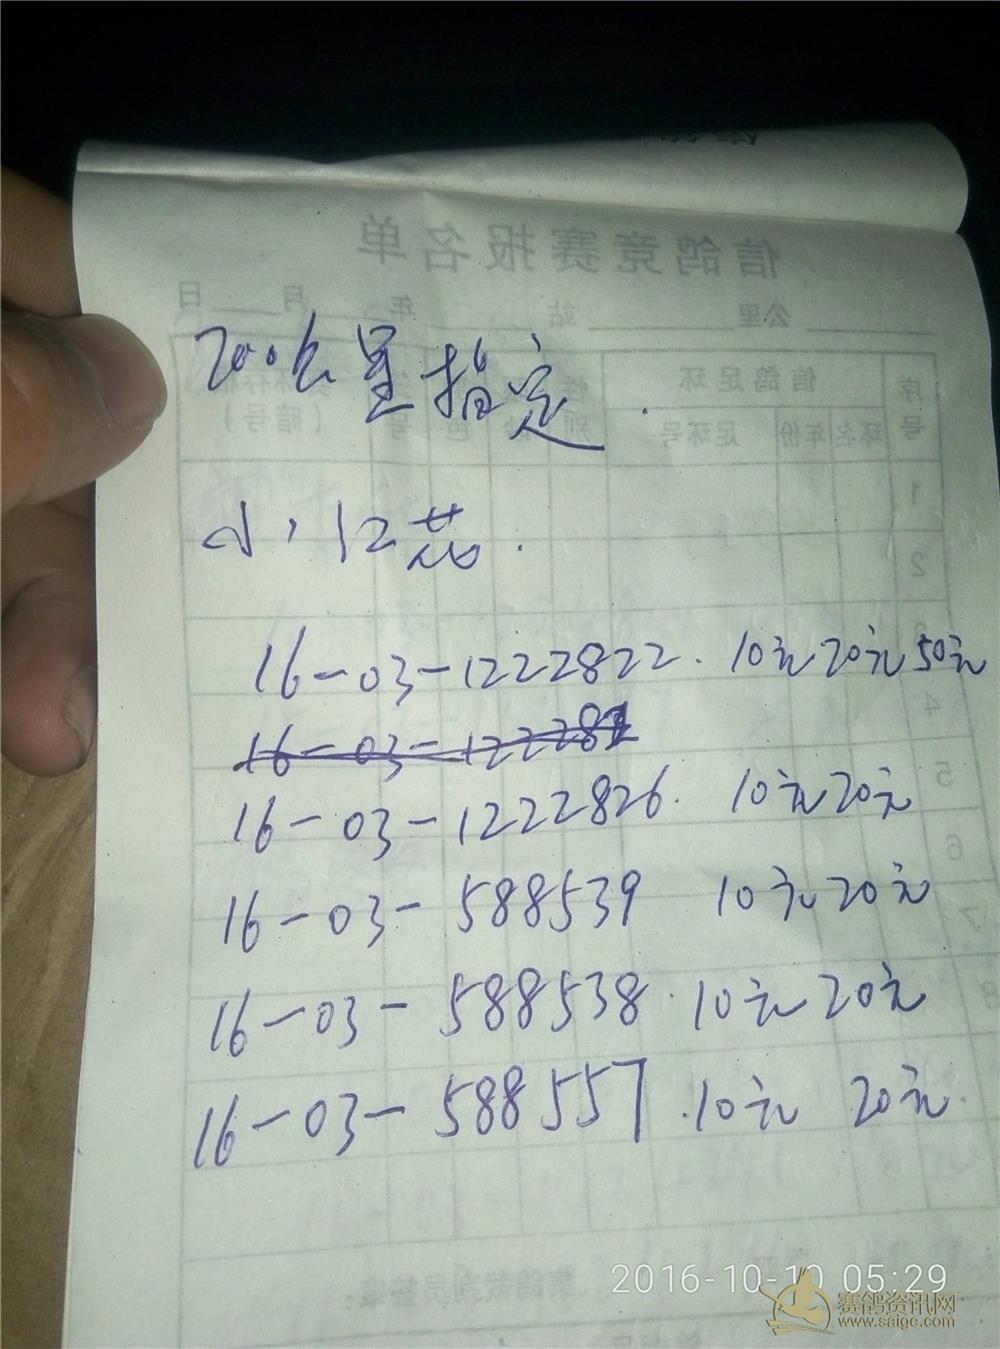 信鸽竞赛报名单
公里 站 年 月 日
200公里指定.
序号 信鸽足环 性别
环名 年份 足环号 色 号 (暗号)
1
小江苏.
2
16-03-1222822. 10元20元50元
4
16-03-122282
5
16-03-1222826. 10元20元
6
16-03-588539 10元20元
7
16-03-588538. 10元20元
8
16-03-588557. 10元 20元.
集鸽裁判员签章:
2016-10-10 05:29
赛鸽资讯网
www.saigc.com